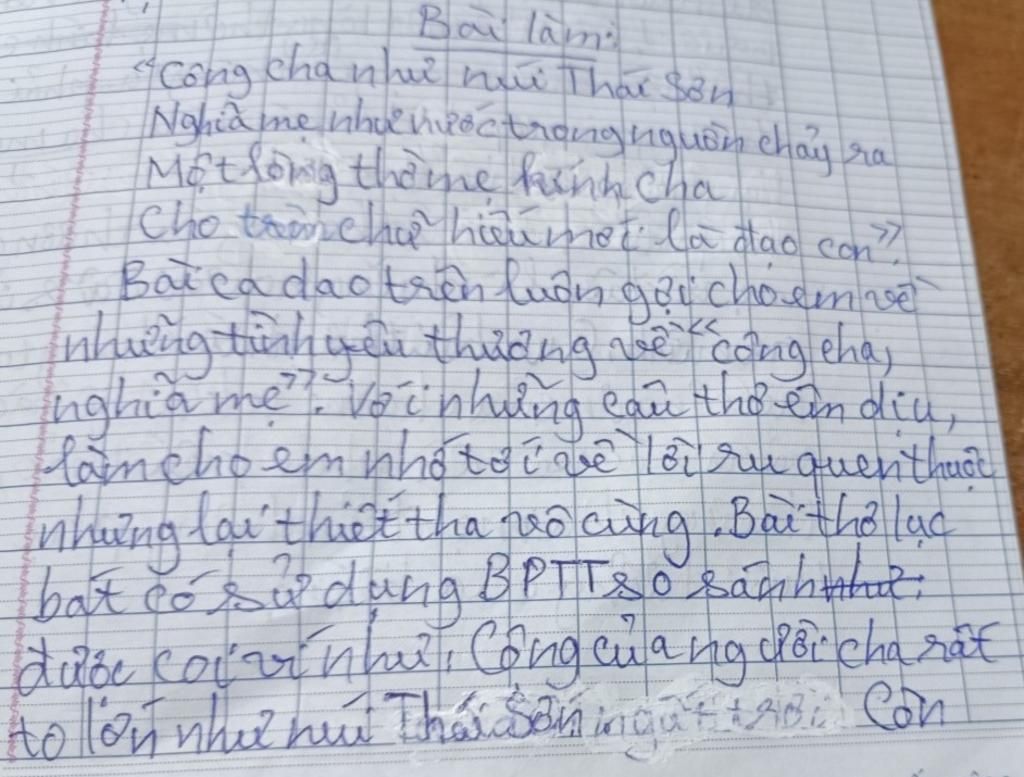 Bài làm:
"Công cha như núi Thái Sơn
Nghĩa mẹ như nước trong nguồn chảy ra
Một lòng thờ mẹ kính cha
Cho tròn chữ hiếu mới là đạo con".
Bài ca dao trên luôn gợi cho em về
những tình yêu thương về "công cha,
nghĩa mẹ". Với những câu thơ êm dịu,
làm cho em nhớ tới về lời ru quen thuộc
nhưng lại thiết tha vô cùng. Bài thơ lục
bát có sử dụng BPTT so sánh như:
được coi ví như, Công của người cha rất
to lớn như núi Thái Sơn ngất trời. Còn